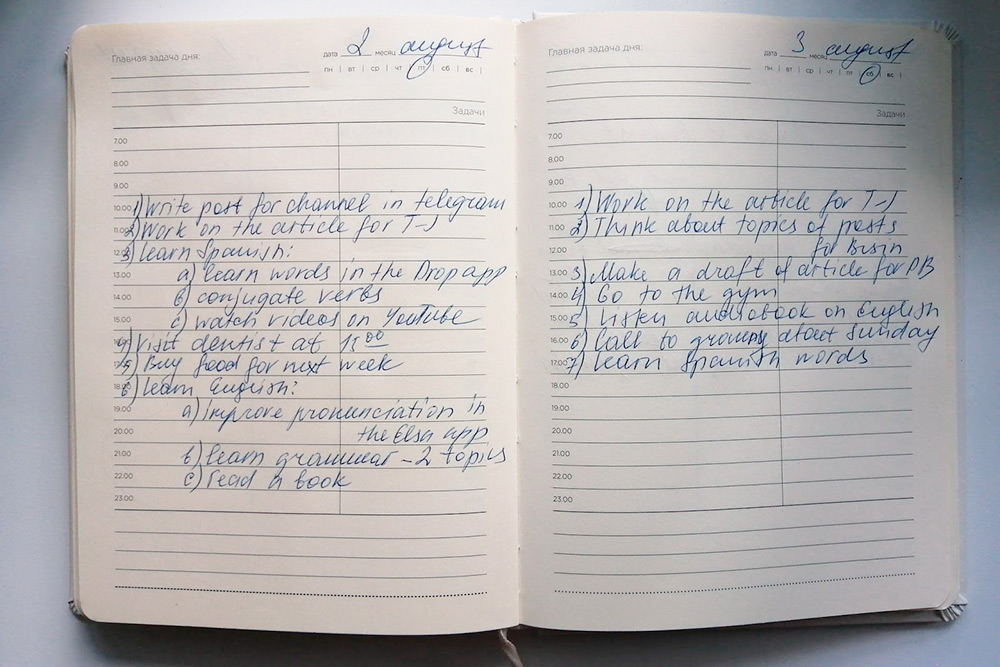 Главная задача дня:
дата 2 месяц august
пн | вт | ср | чт | пт | сб | вс |
Задачи
7.00
8.00
9.00
10.00 1) Write post for channel in telegram
11.00 2) Work on the article for T-J
12.00 3) Learn Spanish:
13.00 a) learn words in the Drop app
14.00 б) conjugate verbs
15.00 c) watch videos on YouTube
16.00 4) Visit dentist at 15 00
17.00 5) Buy food for next week
18.00 6) Learn English:
19.00 a) improve pronunciation in
20.00 the Elsa app
21.00 b) learn grammar - 2 topics
22.00 c) read a book
23.00
Главная задача дня:
дата 3 месяц august
пн | вт | ср | чт | пт | сб | вс |
Задачи
7.00
8.00
9.00
10.00 1) Work on the article for T-J
11.00 2) Think about topics of posts
12.00 for
13.00 3) Make a draft of article for
14.00 4) Go to the gym
15.00 5) Listen audiobook on English
16.00 6) Call to about Sunday
17.00 7) Learn Spanish words
18.00
19.00
20.00
21.00
22.00
23.00